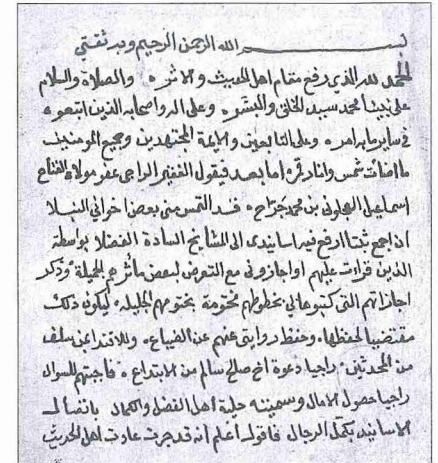 بسم الله الرحمن الرحيم وبه ثقتي
الحمد لله الذي رفع مقام اهل الحديث والاثر والصلاة والسلام
على نبينا محمد سيد الخلق والبشر وعلى اله واصحابه الذين اتبعوه
في ساير ما به امر وعلى التابعين والايمة المجتهدين وجميع المومنين
ما اضائت شمس وانار قمر اما بعد فيقول الفقير الراجي عفو مولاه الفتاح
اسماعيل العجلوني بن محمد جراح قد التمس مني بعض اخواني النبلا
ان اجمع ثبتا ارفع فيه اسانيدي الى المشايخ السادة الفضلا بواسطة
الذين قرات عليهم او اجازوني مع التعرض لبعض ماثرهم الجميلة وذكر
اجازاتهم التي كتبوها لي بخطوطهم مختومة بختومهم الجليله ليكون ذلك
مقتضيا لحفظها وحفظ روايتي عنهم عن الضياع وللاقتدا بمن سلف
من المحدثين راجيا دعوة اخ صالح سالم من الابتداع فاجبتهم للسوال
راجيا حصول الامال وسميته حلية اهل الفضل والكمال باتصال
الاسانيد بكمل الرجال فاقول اعلم انه قد جرت عادت اهل الحديث